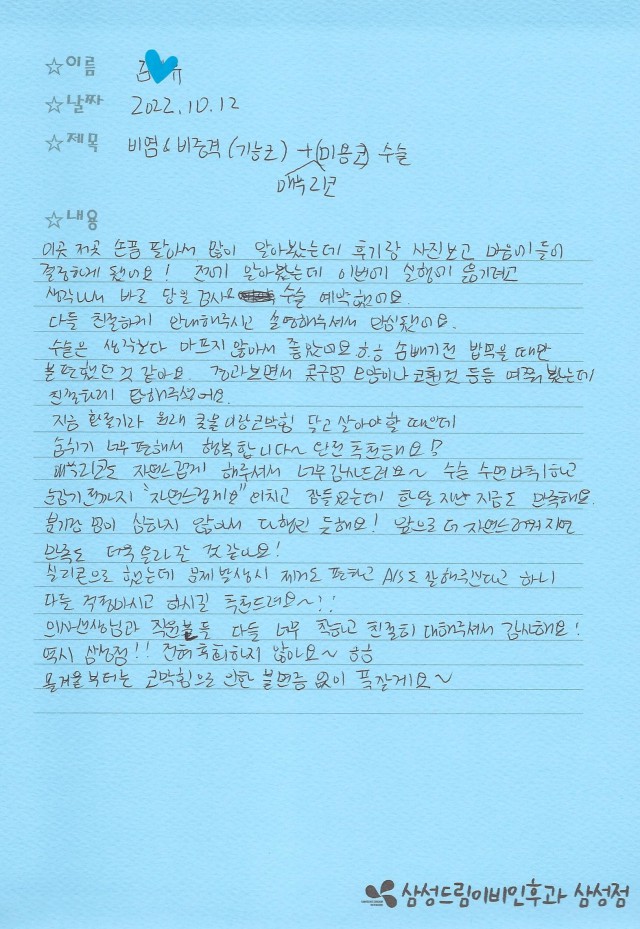 ☆이름 김♥유
☆날짜 2022.10.12
☆제목 비염 & 비중격 (기능코) + (미용코) 수술
매부리코
☆내용
이곳 저곳 손품 팔아서 많이 알아봤는데 후기랑 사진보고 마음에 들어
결정하게 됐어요! 전에 알아봤는데 이번에 실행에 옮기려고
바로 당일 검사로 수술 예약했어요.
다들 친절하게 안내해주시고 설명해주셔서 안심됐어요.
수술은 생각보다 아프지 않아서 좋았어요 ㅎㅎ 솜빼기전 밥먹을 때만
불편했던 것 같아요. 경과보면서 콧구멍 모양이나 코 등등 여쭤 봤는데
친절하게 답해주셨어요.
지금 환절기라 원래 콧물이랑 코막힘 달고 살아야 할 때인데
숨쉬기 너무 편해서 행복합니다~ 완전 추천해요!
매부리코도 자연스럽게 해주셔서 너무 감사드려요~ 수술 수면마취하고
눈감기 전까지 "자연스럽게요" 외치고 잠들었는데 한달 지난 지금도 만족해요.
붓기랑 멍이 심하지 않아서 다행인 듯해요! 앞으로 더 자연스러워지면
만족도 더욱 올라갈 것 같아요!
실리콘으로 했는데 문제 발생시 제거도 편하고 A/S도 잘해주신다고 하니
다들 걱정마시고 하시길 추천드려요~!!
의사선생님과 직원분들 다들 너무 착하고 친절히 대해주셔서 감사해요!
역시 삼성점!! 전혀 후회하지 않아요~ ㅎㅎ
올겨울부터는 코막힘으로 인한 불면증 없이 푹잘게요~
삼성드림이비인후과 삼성점